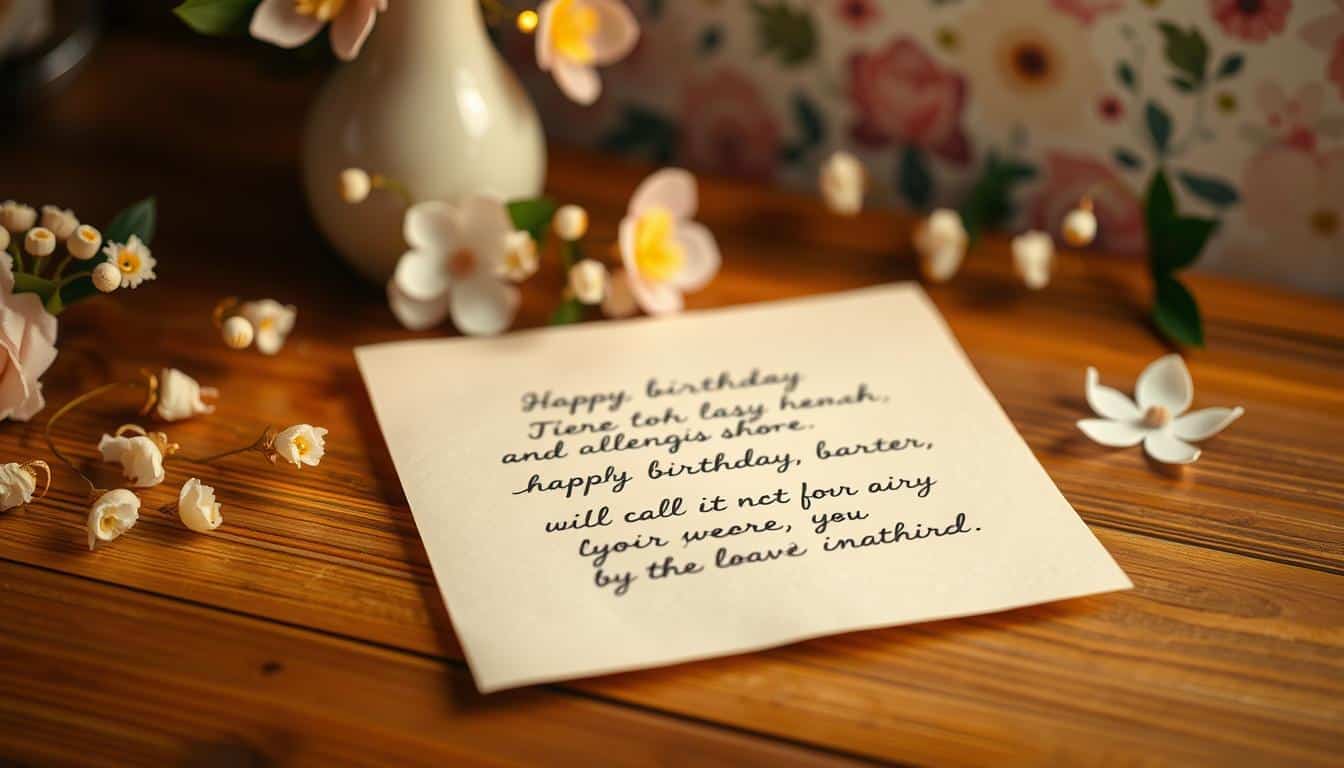 Happy birthday
Tiere toh lasy henah,
and allengis shore.
happly birthday, barter,
will call it nct fovr airy
Cyoir svecre, yeu
by the loave inathird.